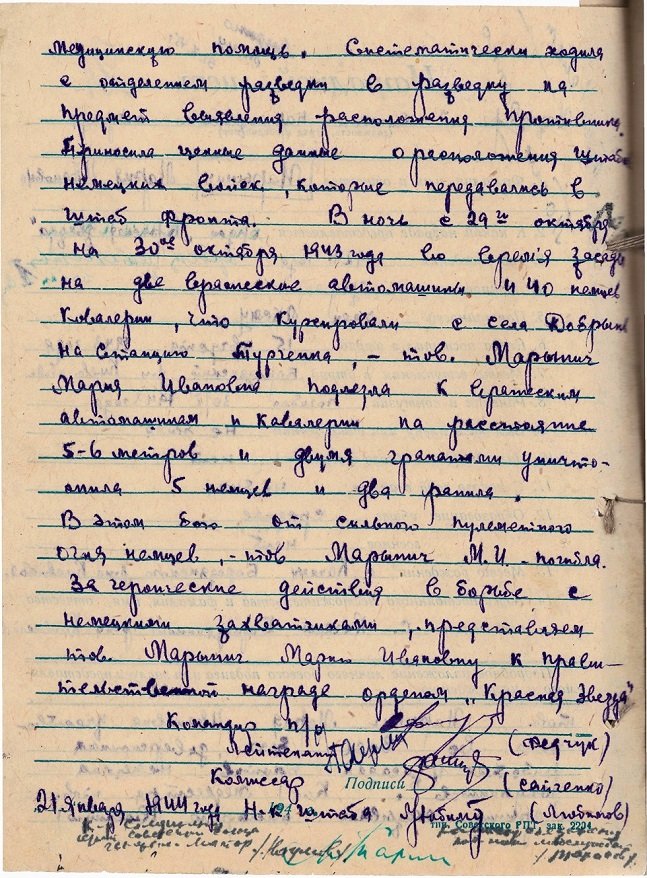 медицинскую помощь. Систематически ходила
с отделением разведки в разведку на
предмет выявления расположения противника.
Приносила ценные данные о расположения штаба
немецких войск, которые передавались в
штаб фронта. В ночь с 29го октября
на 30ое октября 1943 года во время засады
на две вражеские автомашины и 40 немцев
Ковалерии, что курсировали с села Добрынь
на станцию Турченка, - тов. Марынич
Мария Ивановна подлезла к вражеским
автомашинам и кавалерии на расстояние
5-6 метров и двумя гранатами уничто-
жила 5 немцев и два ранила.
В этом бою от сильного пулеметного
огня немцев, - тов Марынич М.И - погибла.
За героические действия в борьбе с
немецкими захватчиками, представляем
тов. Марынич Марию Ивановну к прави-
тельственной награде орденом „Красная Звезда"
Командир п/о
Лейтенант (Федчук)
Комиссар Подписи (Сайченко)
21 января 1944 году Н-к штаба (Любимов)
тип. Советского РПТ, зак. 2294